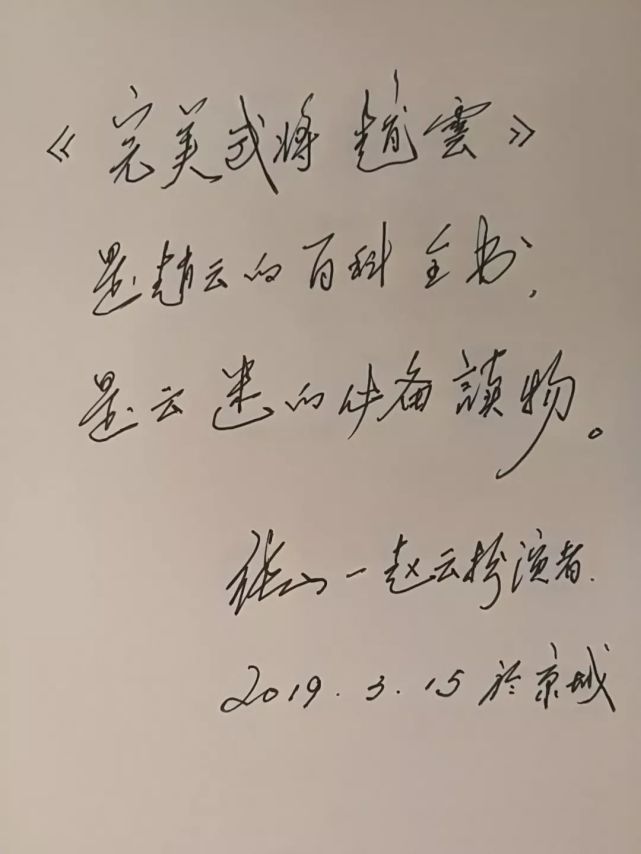 《完美武将趙雲》
是趙云的百科全书，
是云迷的必备讀物。
张山一赵云扮演者.
2019.3.15於京城